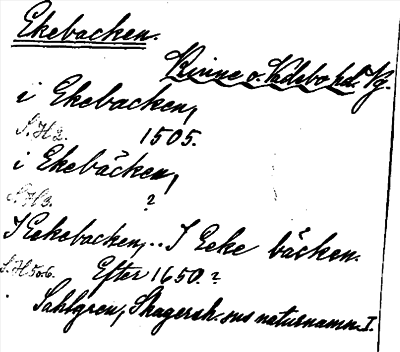 Ekebacken.
Kinne o. Vadsbo hd. Vg.
i Ekebacken,
S.H 2. 1505.
i Ekebäcken,
S.H 3. ?
I Eekebacken,.. I Eeke bäcken.
S.H 5 o. 6. Efter 1650.?
Sahlgren, Skagersh. sns naturnamn. I.